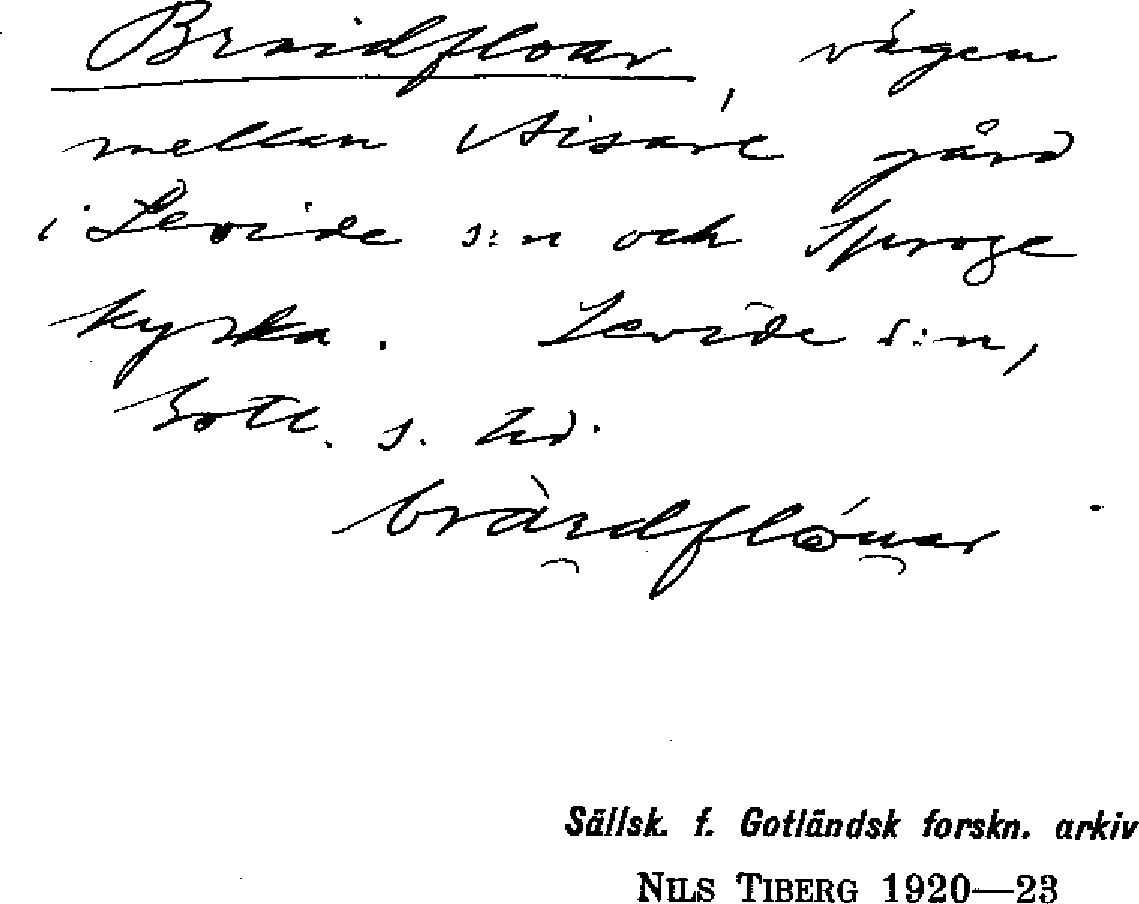 Braidfloar, vägen
mellan Aisare gård
i Levide s:n och Sproge
kyrka. Levide s:n,
Gotl. s. hd.
Sällsk. f. Gotländsk forskn. arkiv
NILS TIBERG 1920—23